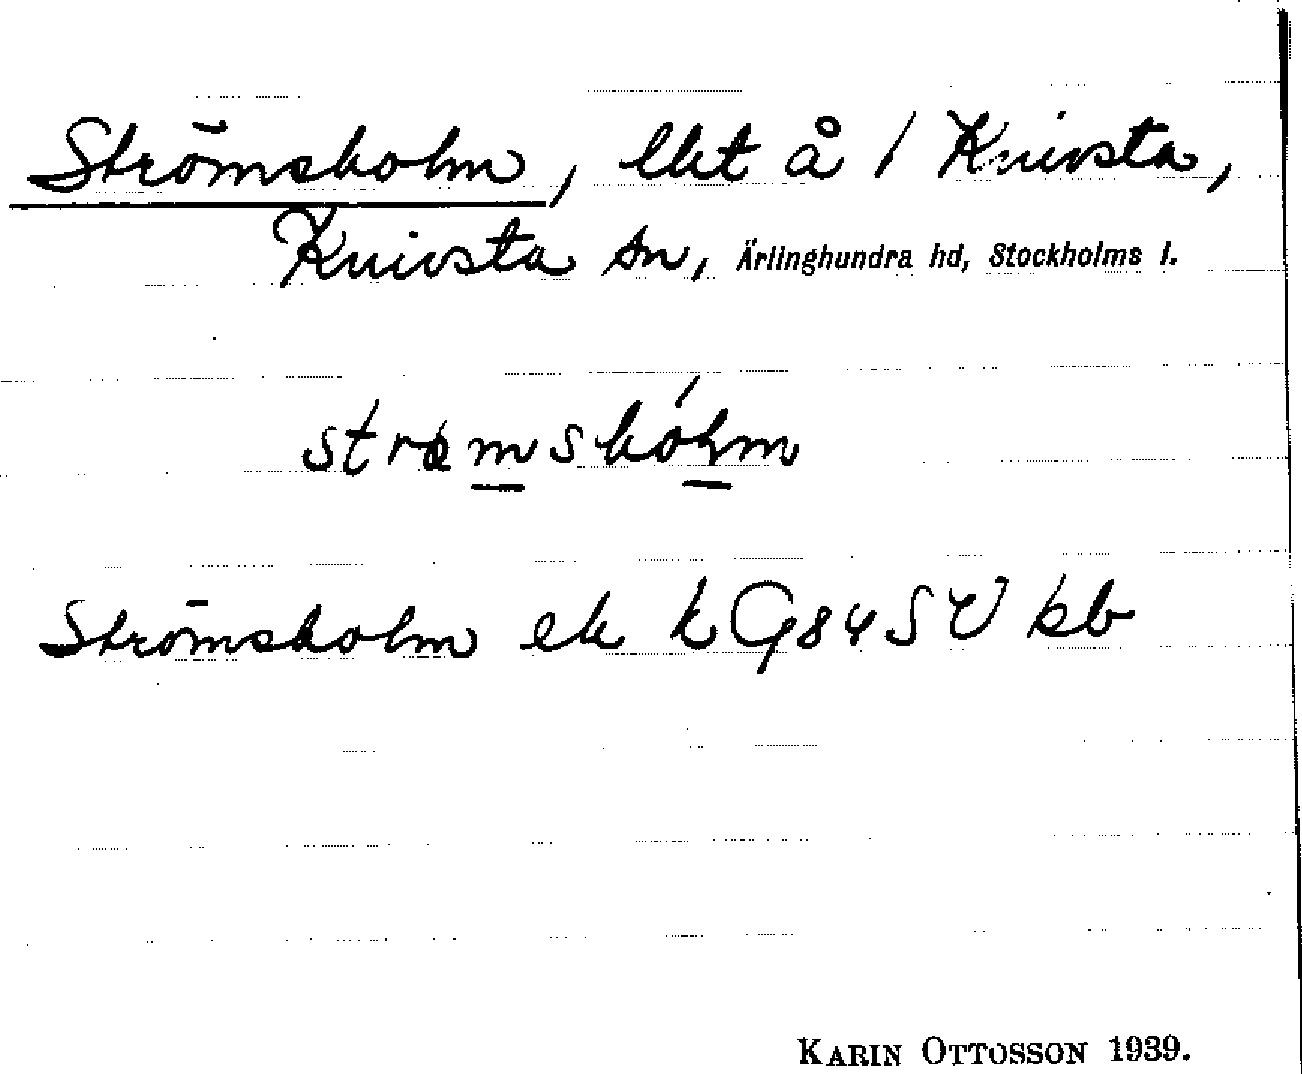 Strömsholm, lht å 1 Knivsta,
Knivsta sn, Ärlinghundra hd, Stockholms l.
strømshólm
Strömsholm ek kG84SV kb
KARIN OTTOSSON 1939.